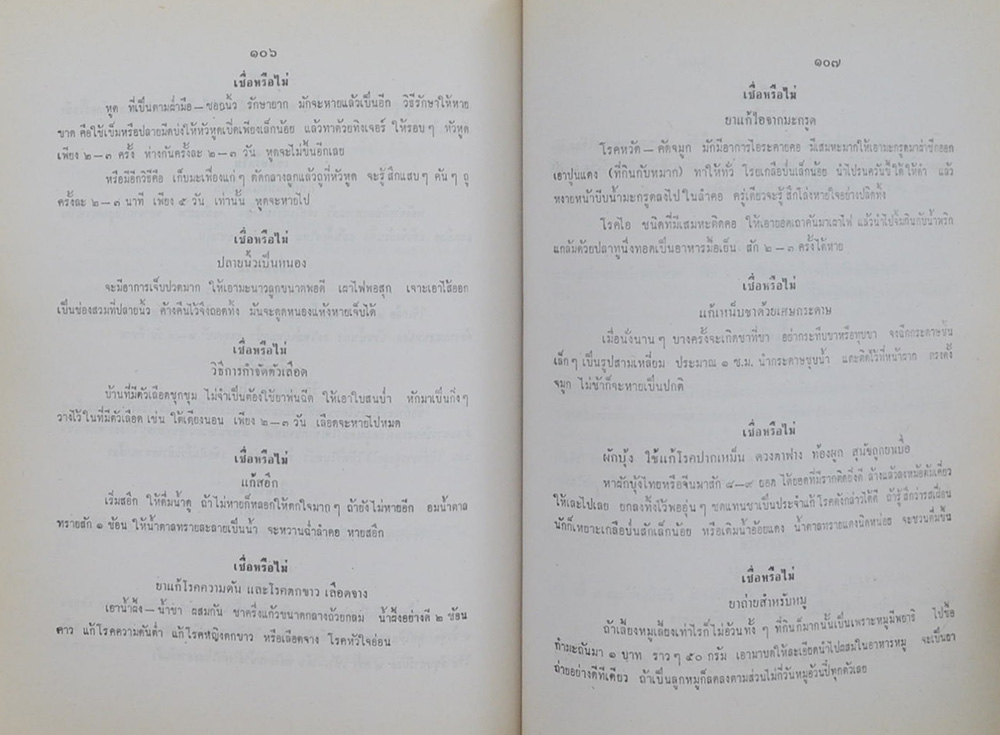 ๑๐๖
เชื่อหรือไม่
หูด ที่เป็นตามฝ่ามือ—ซอกนิ้ว รักษายาก มักจะหายแล้วเป็นอีก วิธีรักษาให้หาย
ขาด คือใช้เข็มหรือปลายมีดบ่งให้หัวหูดเปิดเพียงเล็กน้อย แล้วทาด้วยทิงเจอร์ ให้รอบๆ หัวหูด
เพียง ๒—๓ ครั้ง ห่างกันครั้งละ ๒—๓ วัน หูดจะไม่ขึ้นอีกเลย
หรือมีอีกวิธีคือ เก็บมะเฟืองแก่ๆ ตัดกลางลูกแล้วถูที่หัวหูด จะรู้สึกแสบๆ คันๆ ถู
ครั้งละ ๒—๓ นาที เพียง ๕ วัน เท่านั้น หูดจะหายไป
เชื่อหรือไม่
ปลายนิ้วเป็นหนอง
จะมีอาการเจ็บปวดมาก ให้เอามะนาวลูกขนาดพอดี เผาไฟพอสุก เจาะเอาไส้ออก
เป็นช่องสวมที่ปลายนิ้ว ค้างคืนไว้จึงถอดทิ้ง มันจะดูดหนองแห้งหายเจ็บได้
เชื่อหรือไม่
วิธีการกำจัดตัวเลือด
บ้านที่มีตัวเลือดชุกชุม ไม่จำเป็นต้องใช้ยาพ่นฉีด ให้เอาใบสนป่า หักมาเป็นกิ่งๆ
วางไว้ในที่มีตัวเลือด เช่น ใต้เตียงนอน เพียง ๒—๓ วัน เลือดจะหายไปหมด
เชื่อหรือไม่
แก้สอึก
เริ่มสอึก ให้ดื่มน้ำดู ถ้าไม่หายก็หลอกให้ตกใจมากๆ ถ้ายังไม่หายอีก อมน้ำตาล
ทรายสัก ๑ ช้อน ให้น้ำตาลทรายละลายเป็นน้ำ จะหวานฉ่ำลำคอ หายสอึก
เชื่อหรือไม่
ยาแก้โรคความดัน และโรคตกขาว เลือดจาง
เอาน้ำผึ้ง—น้ำชา ผสมกัน ชาครึ่งแก้วขนาดกลางถ้วยกลม น้ำผึ้งอย่างดี ๒ ช้อน
คาว แก้โรคความดันต่ำ แก้โรคหญิงตกขาว หรือเลือดจาง โรคหัวใจอ่อน
๑๐๗
เชื่อหรือไม่
ยาแก้ไอจากมะกรูด
โรคหวัด—คัดจมูก มักมีอาการไอระคายคอ มีเสมหะมากให้เอามะกรูดมาผ่าซีกออก
เอาปูนแดง (ที่กินกับหมาก) ทาให้ทั่ว โรยเกลือป่นเล็กน้อย นำไปรนควันขี้ใต้ให้ดำ แล้ว
หงายหน้าบีบน้ำมะกรูดลงไปในลำคอ ครู่เดียวจะรู้สึกโล่งหายใจอย่างปลิดทิ้ง
โรคไอ ชนิดที่มีเสมหะติดคอ ให้เอายอดเถาคันมาเผาไฟ แล้วนำไปจิ้มกินกับน้ำพริก
แกล้มด้วยปลาทูนึ่งทอดเป็นอาหารมื้อเย็น สัก ๒—๓ ครั้งได้หาย
เชื่อหรือไม่
แก้เหน็บชาด้วยเศษกระดาษ
เมื่อนั่งนานๆ บางครั้งจะเกิดชาที่ขา อย่ากระทืบขาหรือทุบขา จงฉีกกระดาษชิ้น
เล็กๆ เป็นรูปสามเหลี่ยม ประมาณ ๑ ซ.ม. นำกระดาษชุบน้ำ และติดไว้ที่หน้าผาก ตรงดั้ง
จมูก ไม่ช้าก็จะหายเป็นปกติ
เชื่อหรือไม่
ผักบุ้ง ใช้แก้โรคปากเหม็น ดวงตาฟาง ท้องผูก สุนัขถูกยาเบื่อ
หาผักบุ้งไทยหรือจีนมาสัก ๘—๙ ยอด ได้ยอดที่มีรากติดยิ่งดี ล้างแล้วลงหม้อต้มเคี่ยว
ให้เละไปเลย ยกลงทิ้งไว้พออุ่นๆ ซดแทนชาเป็นประจำแก้โรคดังกล่าวได้ดี ถ้ารู้สึกว่ารสเฝื่อน
นักก็เหยาะเกลือป่นสักเล็กน้อย หรือเติมน้ำอ้อยแดง น้ำตาลทรายแดงนิดหน่อย จะชวนดื่มขึ้น
เชื่อหรือไม่
ยาถ่ายสำหรับหมู
ถ้าเลี้ยงหมูเลี้ยงเท่าไรก็ไม่อ้วนทั้งๆ ที่กินก็มากนั้นเป็นเพราะหมูมีพยาธิ ไปซื้อ
กำมะถันมา ๑ บาท ราวๆ ๕๐ กรัม เอามาบดให้ละเอียดนำไปผสมในอาหารหมู จะเป็นยา
ถ่ายอย่างดีทีเดียว ถ้าเป็นลูกหมูก็ลดลงตามส่วนไม่กี่วันหมูอ้วนปี๋ทุกตัวเลย